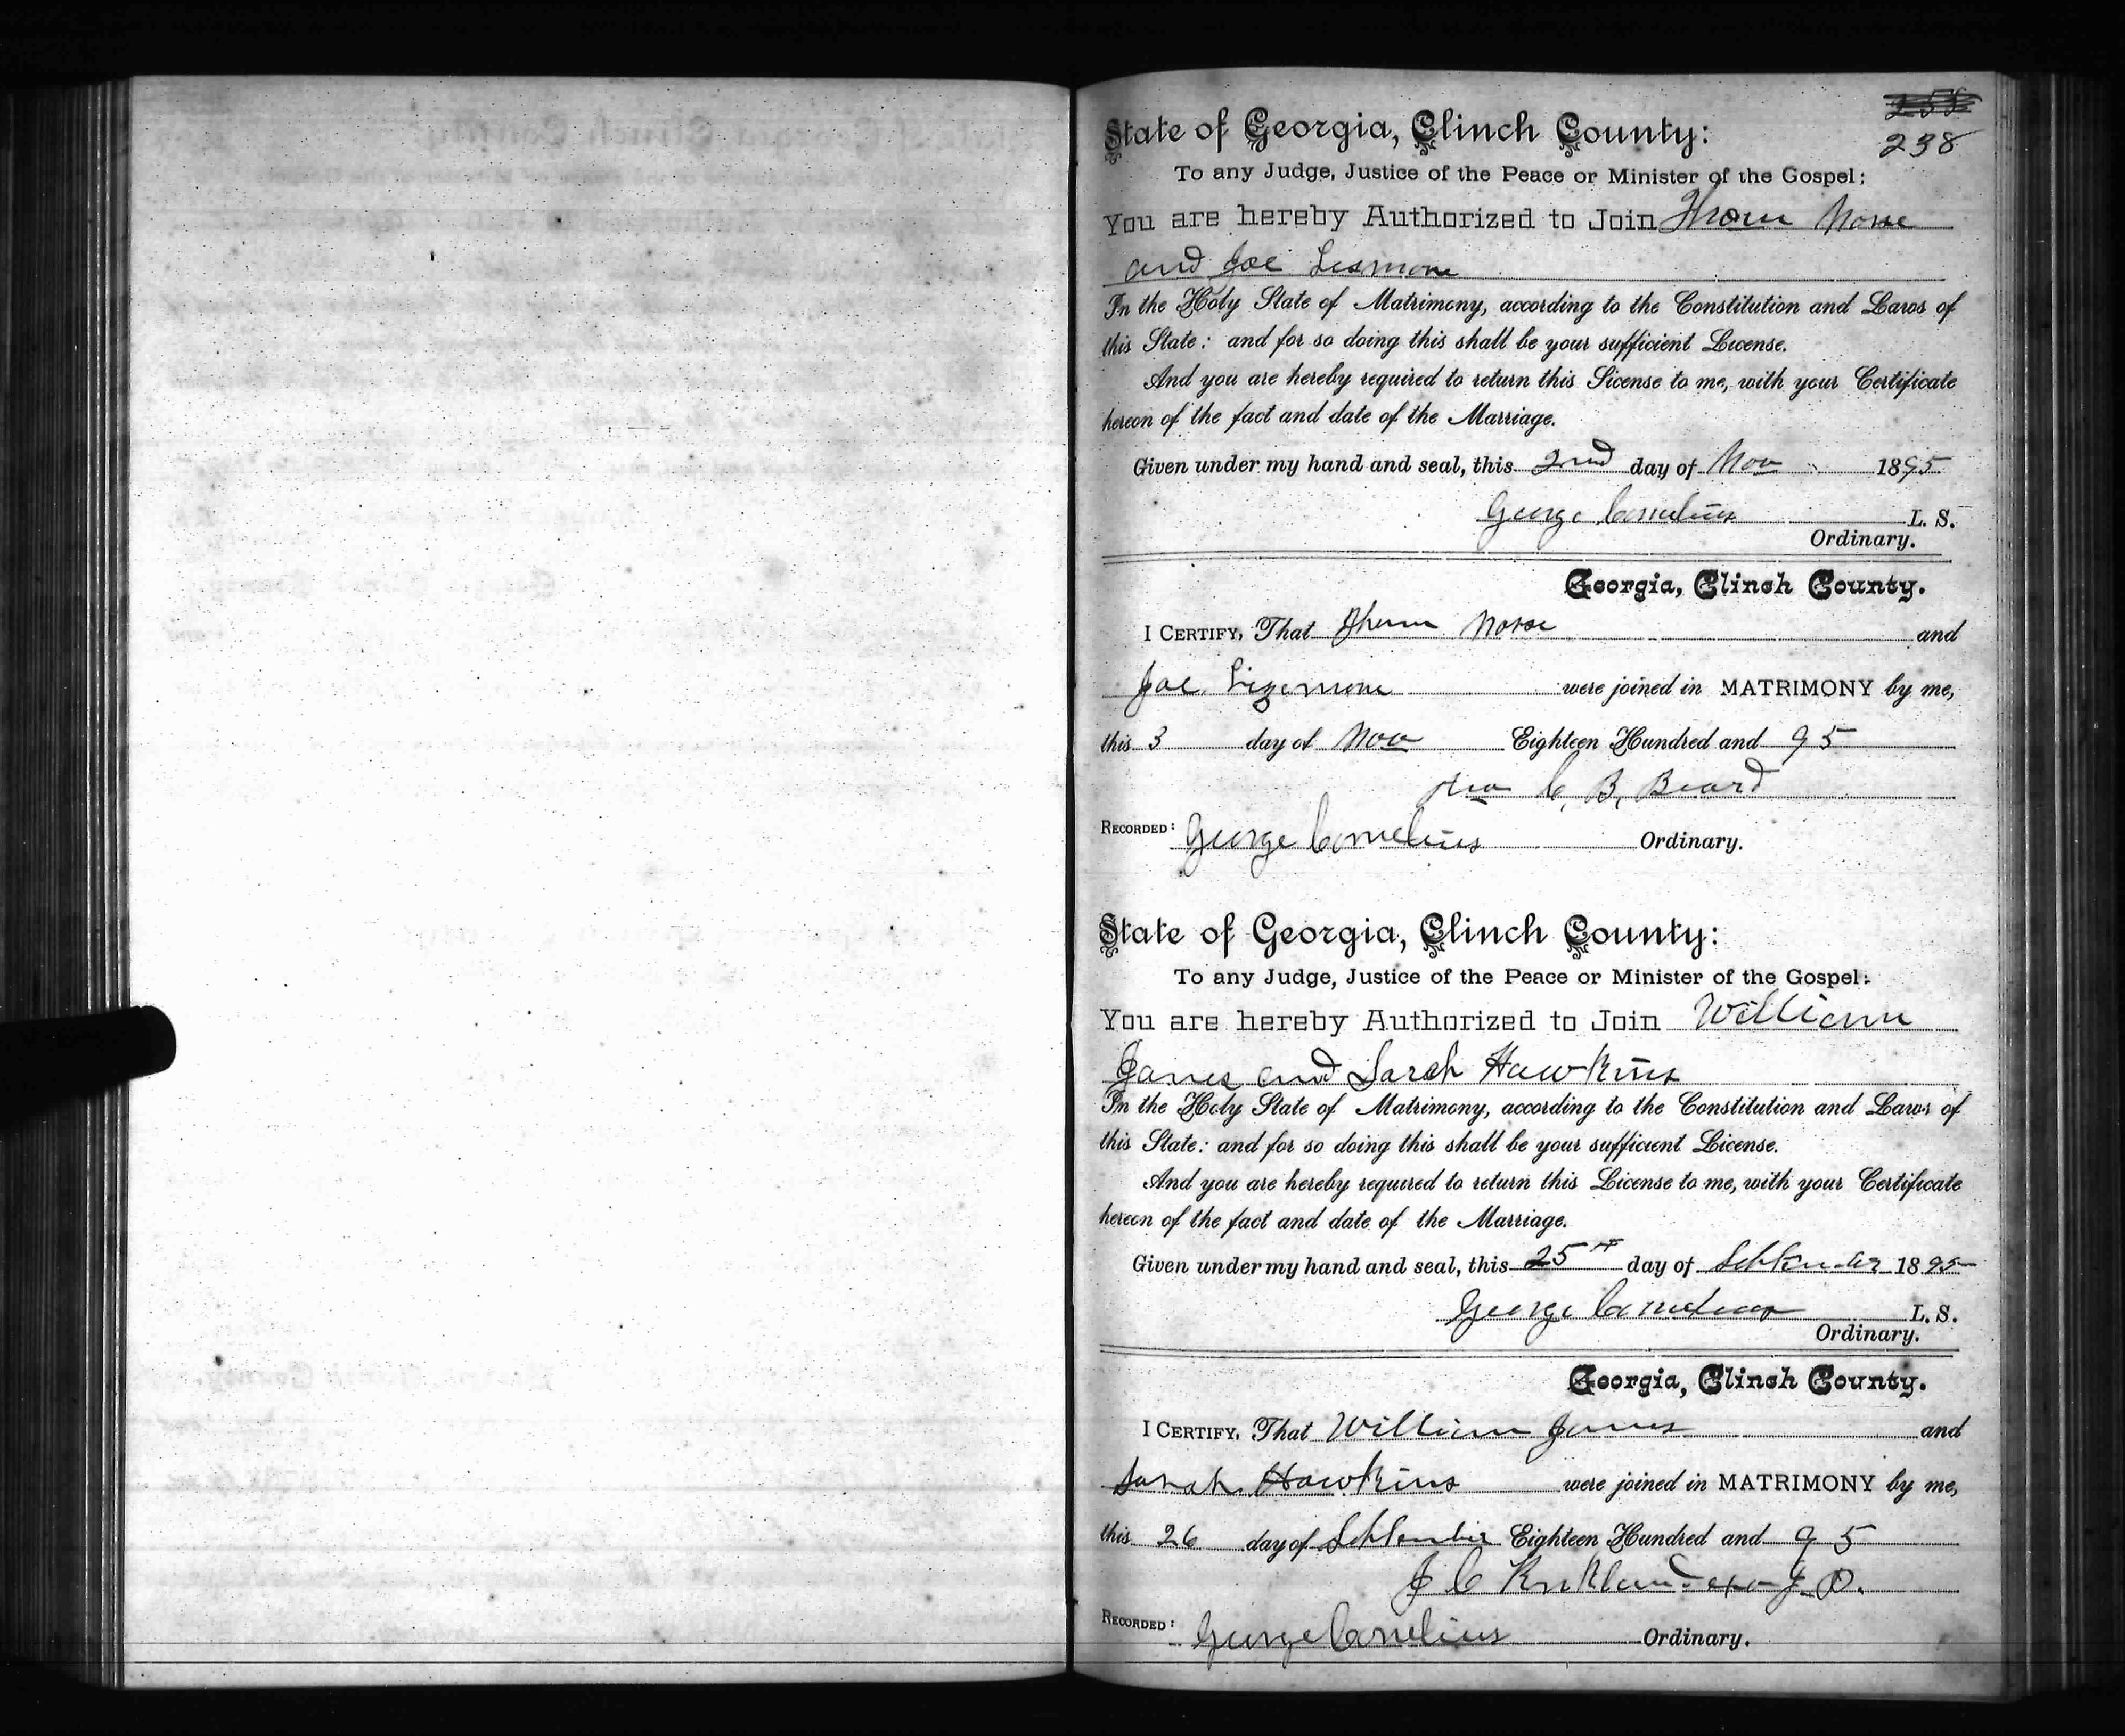 238
State of Georgia, Clinch County:
To any Judge, Justice of the Peace or Minister of the Gospel:
You are hereby Authorized to Join
and Joe
In the Holy State of Matrimony, according to the Constitution and Laws of
this State: and for so doing this shall be your sufficient License.
And you are hereby required to return this License to me, with your Certificate
hereon of the fact and date of the Marriage.
Given under my hand and seal, this 2nd day of Nov 1895
George Cornelius L. S.
Ordinary.
Georgia, Clinch County.
I CERTIFY, That and
Joe were joined in MATRIMONY by me,
this 3 day of Nov Eighteen Hundred and 95
C. B. Beard
RECORDED: George Cornelius Ordinary.
State of Georgia, Clinch County:
To any Judge, Justice of the Peace or Minister of the Gospel:
You are hereby Authorized to Join William
James and Sarah Hawkins
In the Holy State of Matrimony, according to the Constitution and Laws of
this State: and for so doing this shall be your sufficient License.
And you are hereby required to return this License to me, with your Certificate
hereon of the fact and date of the Marriage.
Given under my hand and seal, this 25th day of September 1895
George Cornelius L. S.
Ordinary.
Georgia, Clinch County.
I CERTIFY, That William James and
Sarah Hawkins were joined in MATRIMONY by me,
this 26 day of September Eighteen Hundred and 95
J C Kirkland
RECORDED: George Cornelius Ordinary.